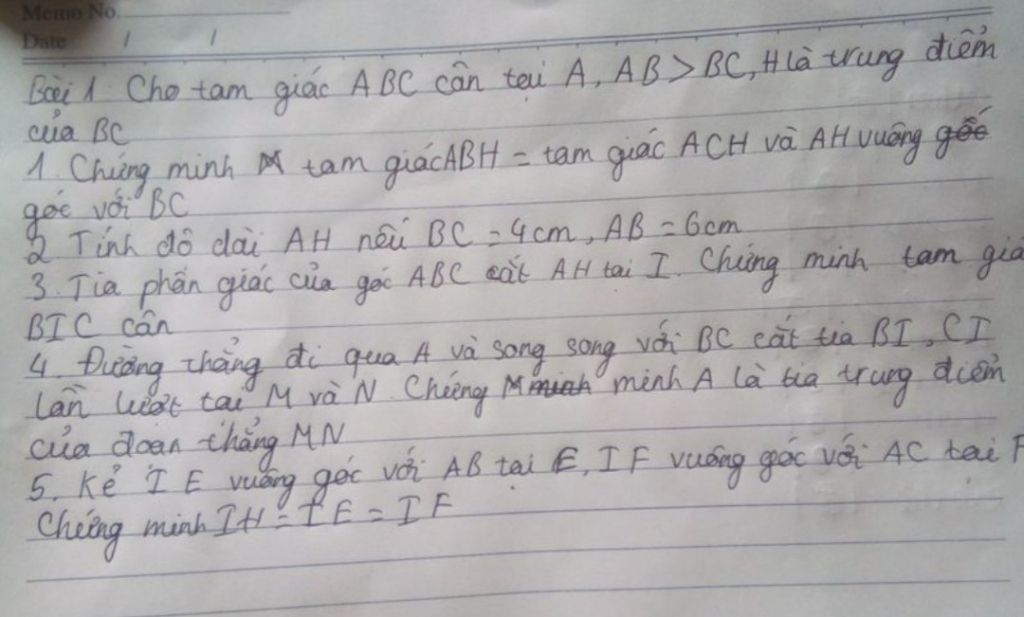 Memo No.
Date / /
Bài 1. Cho tam giác ABC cân tại A, AB > BC, H là trung điểm
của BC
1. Chứng minh tam giác ABH = tam giác ACH và AH vuông góc
góc với BC
2 Tính độ dài AH nếu BC = 4cm, AB = 6cm
3. Tia phân giác của góc ABC cắt AH tại I. Chứng minh tam giá
BIC cân
4. Đường thẳng đi qua A và song song với BC cắt tia BI, CI
lần lượt tại M và N. Chứng Mminh minh A là tia trung điểm
của đoạn thẳng MN
5. Kẻ IE vuông góc với AB tại E, IF vuông góc với AC tại F
Chứng minh IH = IE = IF